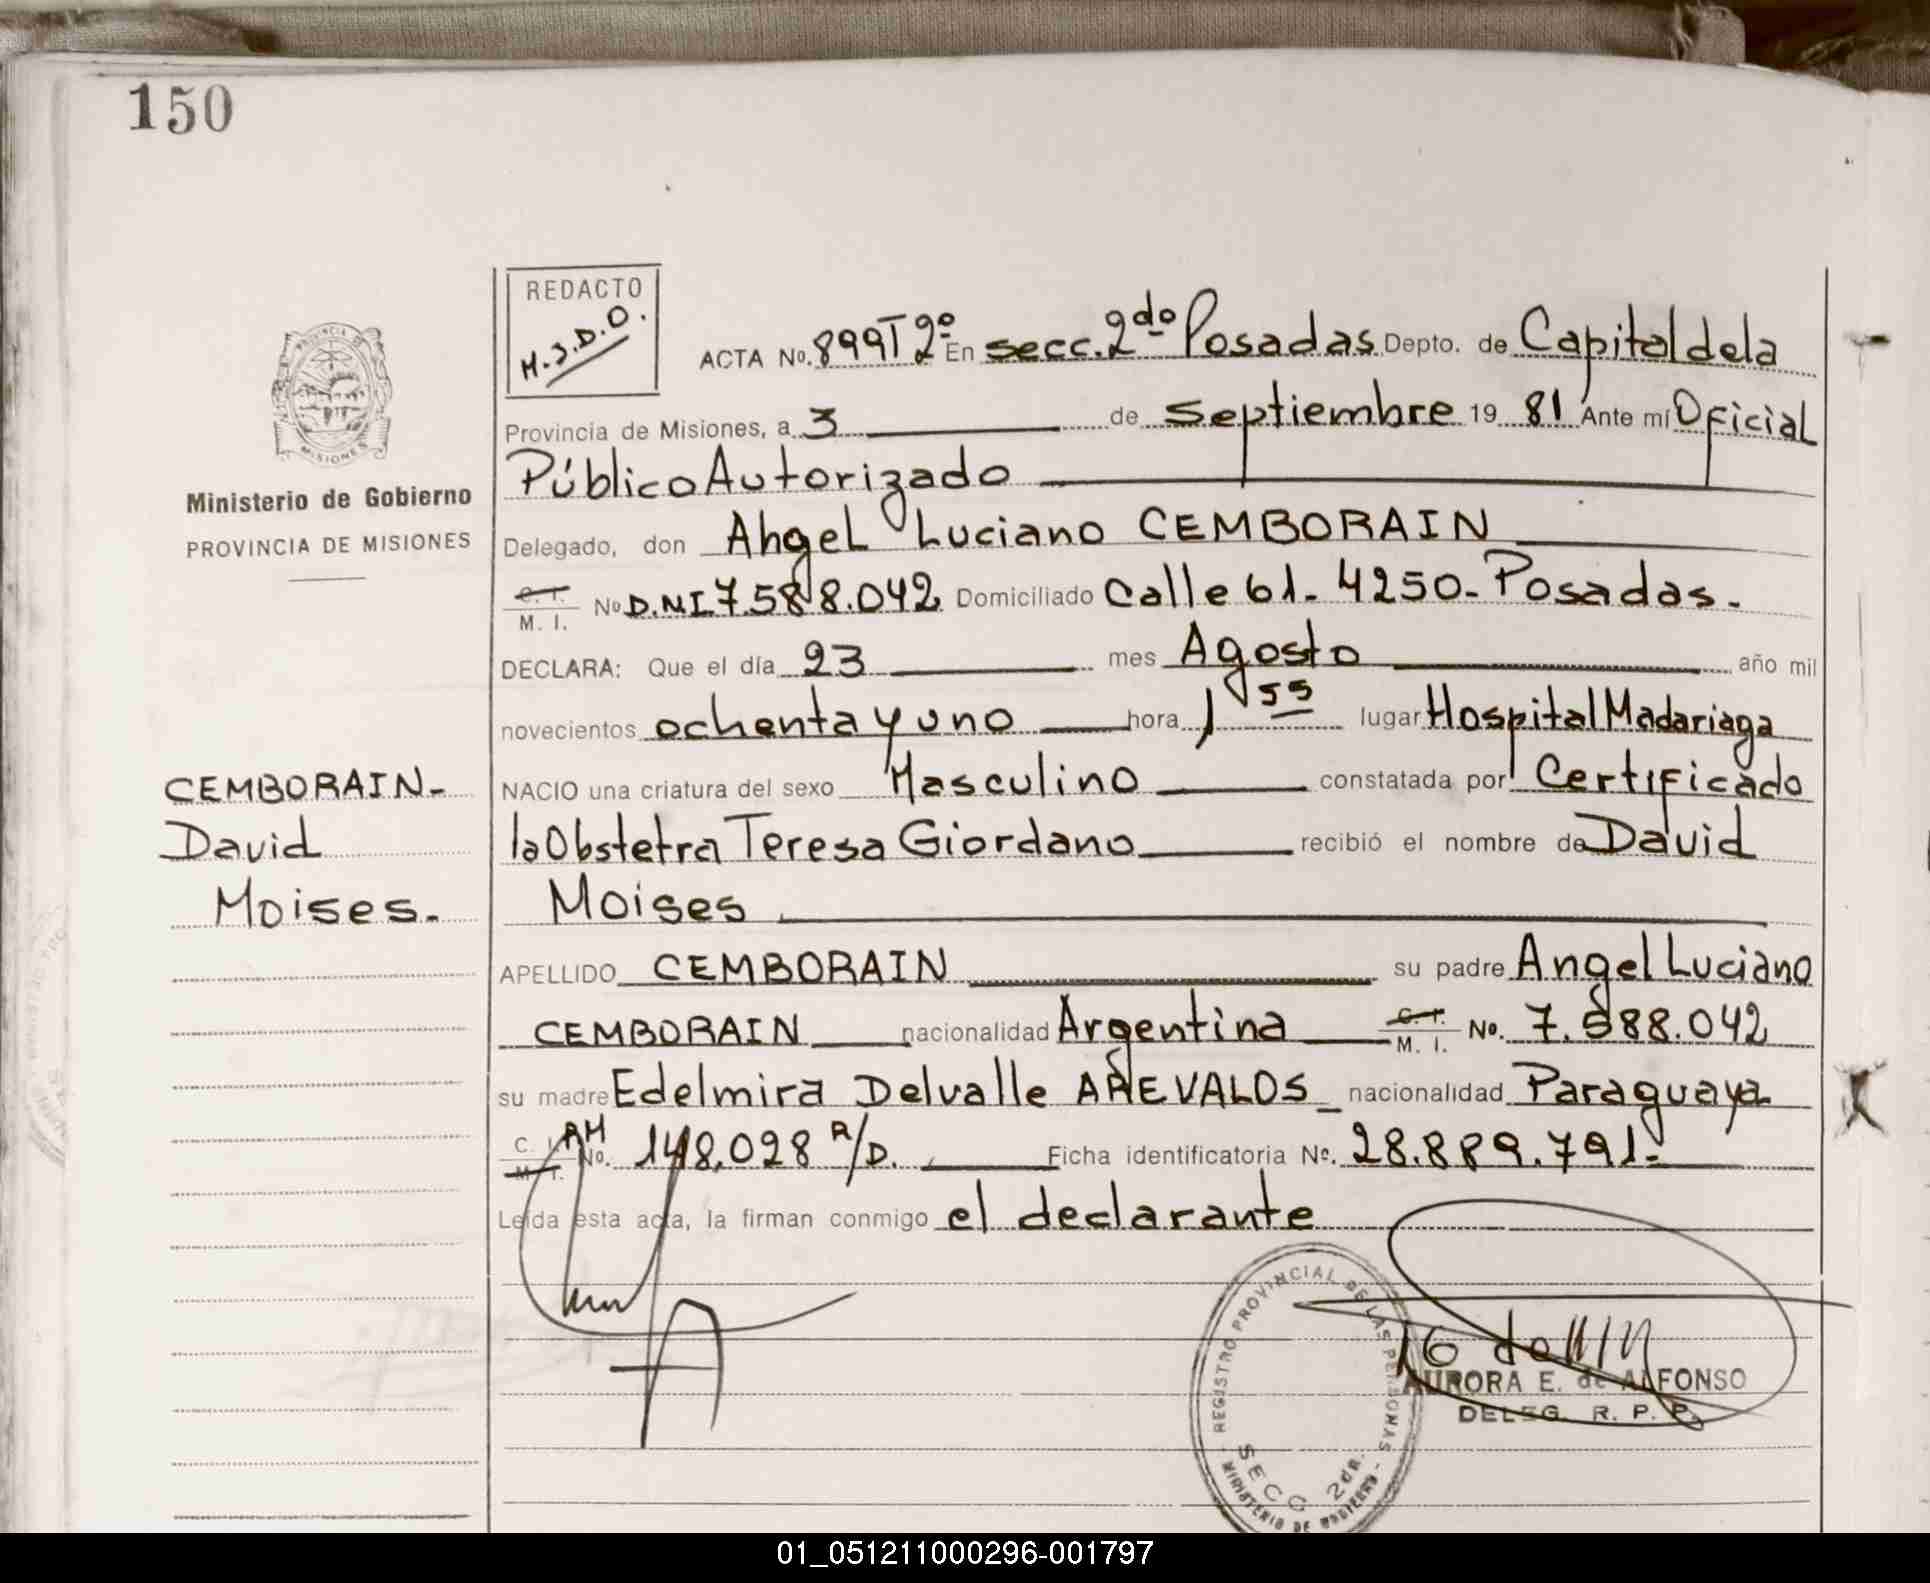 150
REDACTO
M.J.D.O.
ACTA No. 899 T 2º En secc. 2do Posadas Depto. de Capital dela
Provincia de Misiones, a 3 de septiembre 19 81 Ante mí Oficial
Público Autorizado
Delegado, don Angel Luciano CEMBORAIN
C. I. M. I. No D.N.I. 7.588.042 Domiciliado Calle 61 - 4250 - Posadas.
DECLARA: Que el día 23 mes Agosto año mil
novecientos ochenta y uno hora 1 55 lugar Hospital Madariaga
NACIO una criatura del sexo Masculino constatada por Certificado
la Obstetra Teresa Giordano recibió el nombre de David
Moises
APELLIDO CEMBORAIN su padre Angel Luciano
CEMBORAIN nacionalidad Argentina C. I. M. I. No. 7.588.042
su madre Edelmira Delvalle AREVALOS nacionalidad Paraguaya
C. I. M. I. No. 148.028 R/D. Ficha identificatoria No. 28.889.791.
Leída esta acta, la firman conmigo el declarante
PROVINCIA DE
MISIONES
Ministerio de Gobierno
PROVINCIA DE MISIONES
CEMBORAIN-
David
Moises.
REGISTRO PROVINCIAL DE LAS PERSONAS
SECC 2da.
MINISTERIO DE GOBIERNO
AURORA E. de ALFONSO
DELEG. R. P. P.
01_051211000296-001797